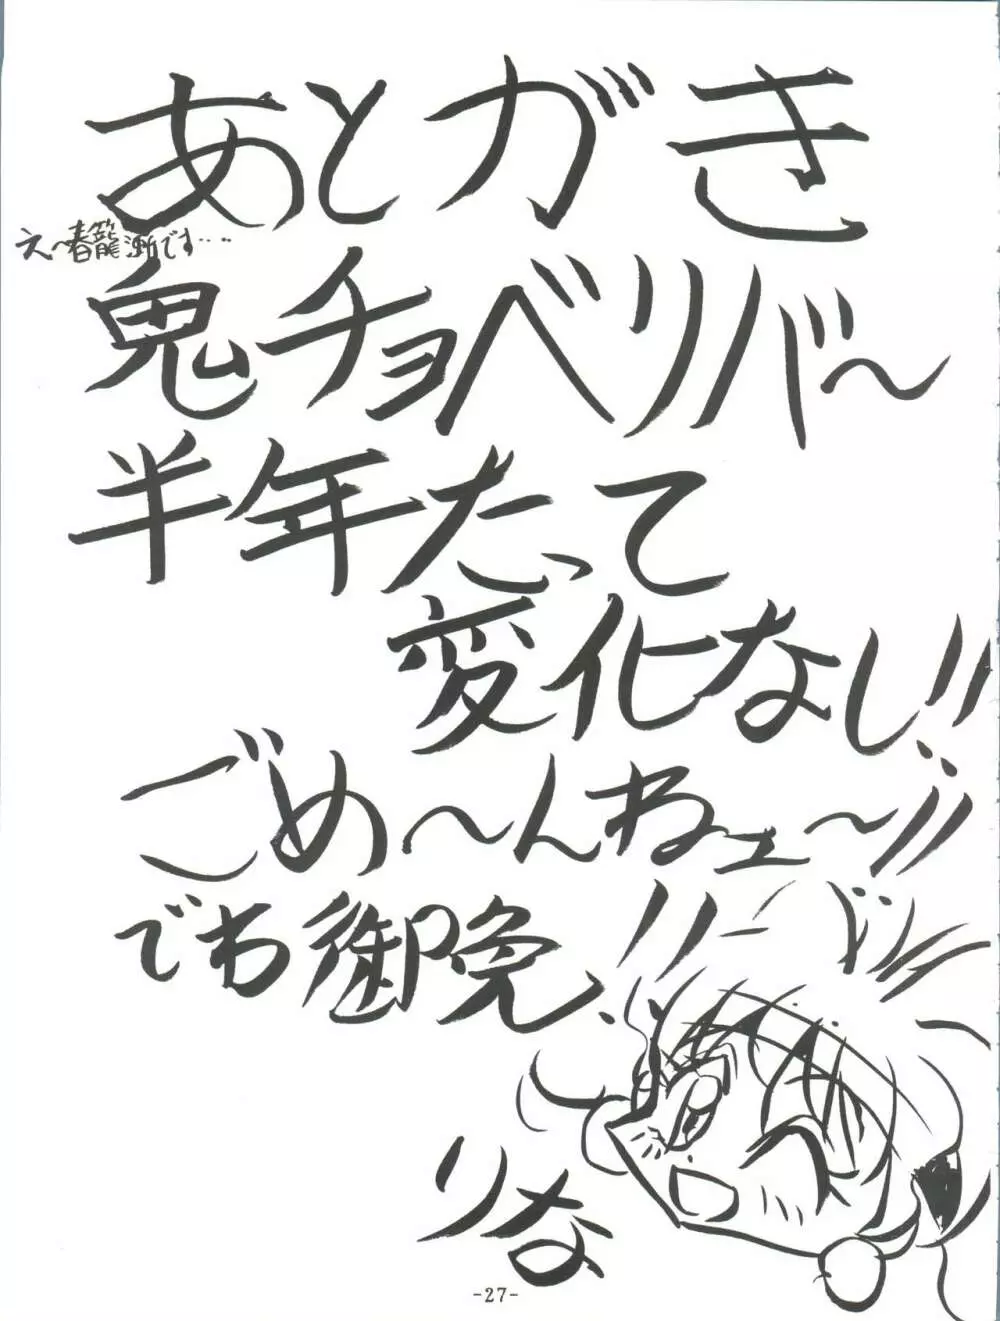 あとがき
え〜春籠漸です…
鬼チョベリバ〜
半年たって
変化なし!!
ごめ〜んねェ〜!!
でわ御免!!
りな
-27-